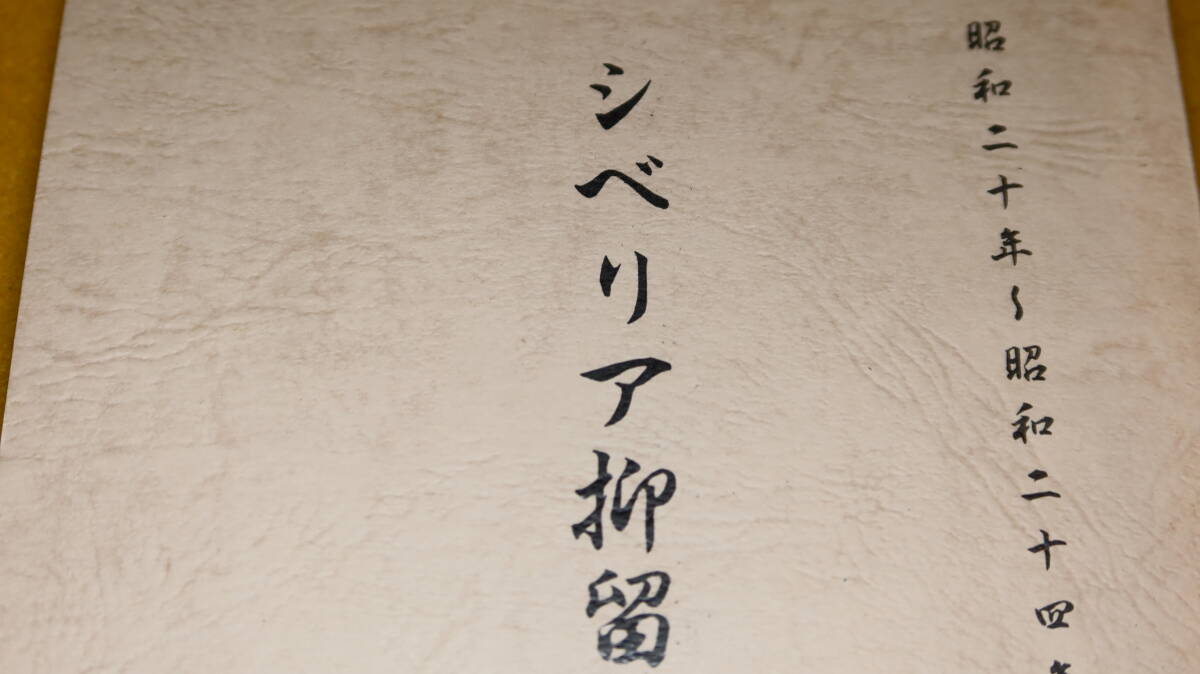 昭和二十年〜昭和二十四年
シベリア抑留